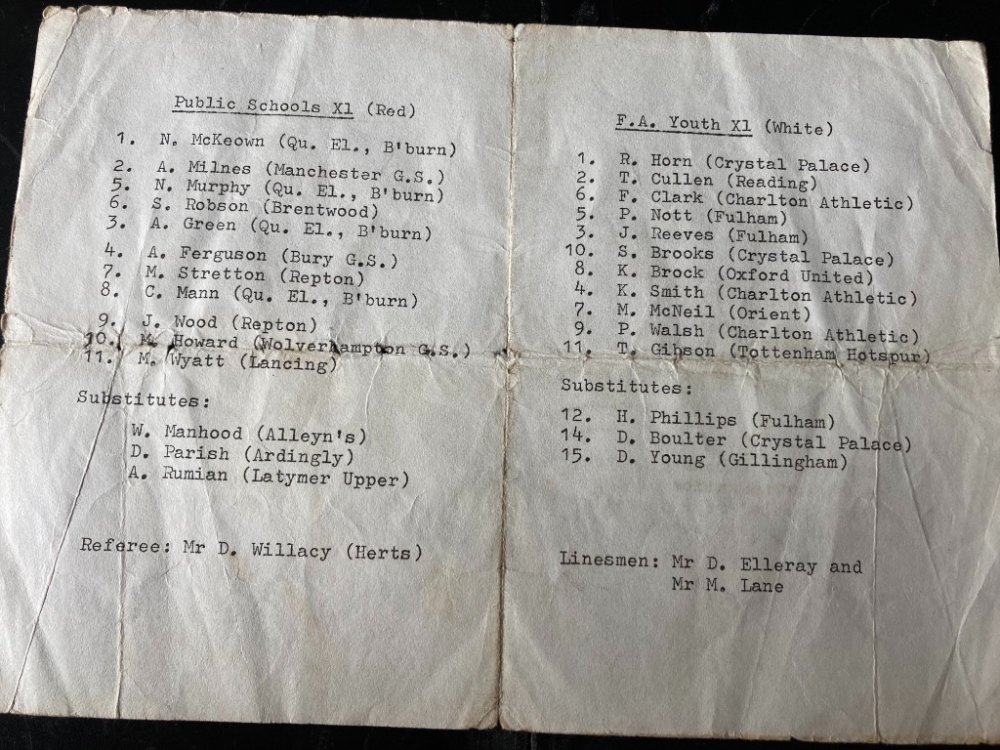 Public Schools X1 (Red)
1. N. McKeown (Qu. El., B'burn)
2. A. Milnes (Manchester G.S.)
5. N. Murphy (Qu. El., B'burn)
6. S. Robson (Brentwood)
3. A. Green (Qu. El., B'burn)
4. A. Ferguson (Bury G.S.)
7. M. Stretton (Repton)
8. C. Mann (Qu. El., B'burn)
9. J. Wood (Repton)
10. M. Howard (Wolverhampton G.S.)
11. M. Wyatt (Lancing)
Substitutes:
W. Manhood (Alleyn's)
D. Parish (Ardingly)
A. Rumian (Latymer Upper)
Referee: Mr D. Willacy (Herts)
F.A. Youth X1 (White)
1. R. Horn (Crystal Palace)
2. T. Cullen (Reading)
6. F. Clark (Charlton Athletic)
5. P. Nott (Fulham)
3. J. Reeves (Fulham)
10. S. Brooks (Crystal Palace)
8. K. Brock (Oxford United)
4. K. Smith (Charlton Athletic)
7. M. McNeil (Orient)
9. P. Walsh (Charlton Athletic)
11. T. Gibson (Tottenham Hotspur)
Substitutes:
12. H. Phillips (Fulham)
14. D. Boulter (Crystal Palace)
15. D. Young (Gillingham)
Linesmen: Mr D. Elleray and
Mr M. Lane